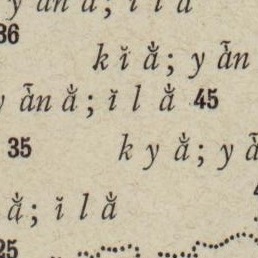 36
k ĭ ằ ; y ẵn
ẵn ằ ; ĭ l ằ 45
35 k y ằ ; y
ằ ; ĭ l ằ
25